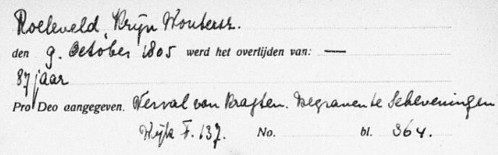 Roeleveld, Krijn Woutersz.
den 9. October 1805 werd het overlijden van: —
87 jaar
Pro Deo aangegeven. Verval van Kragten. Begraven te Scheveningen
Wijk F. 137. No. bl. 364.